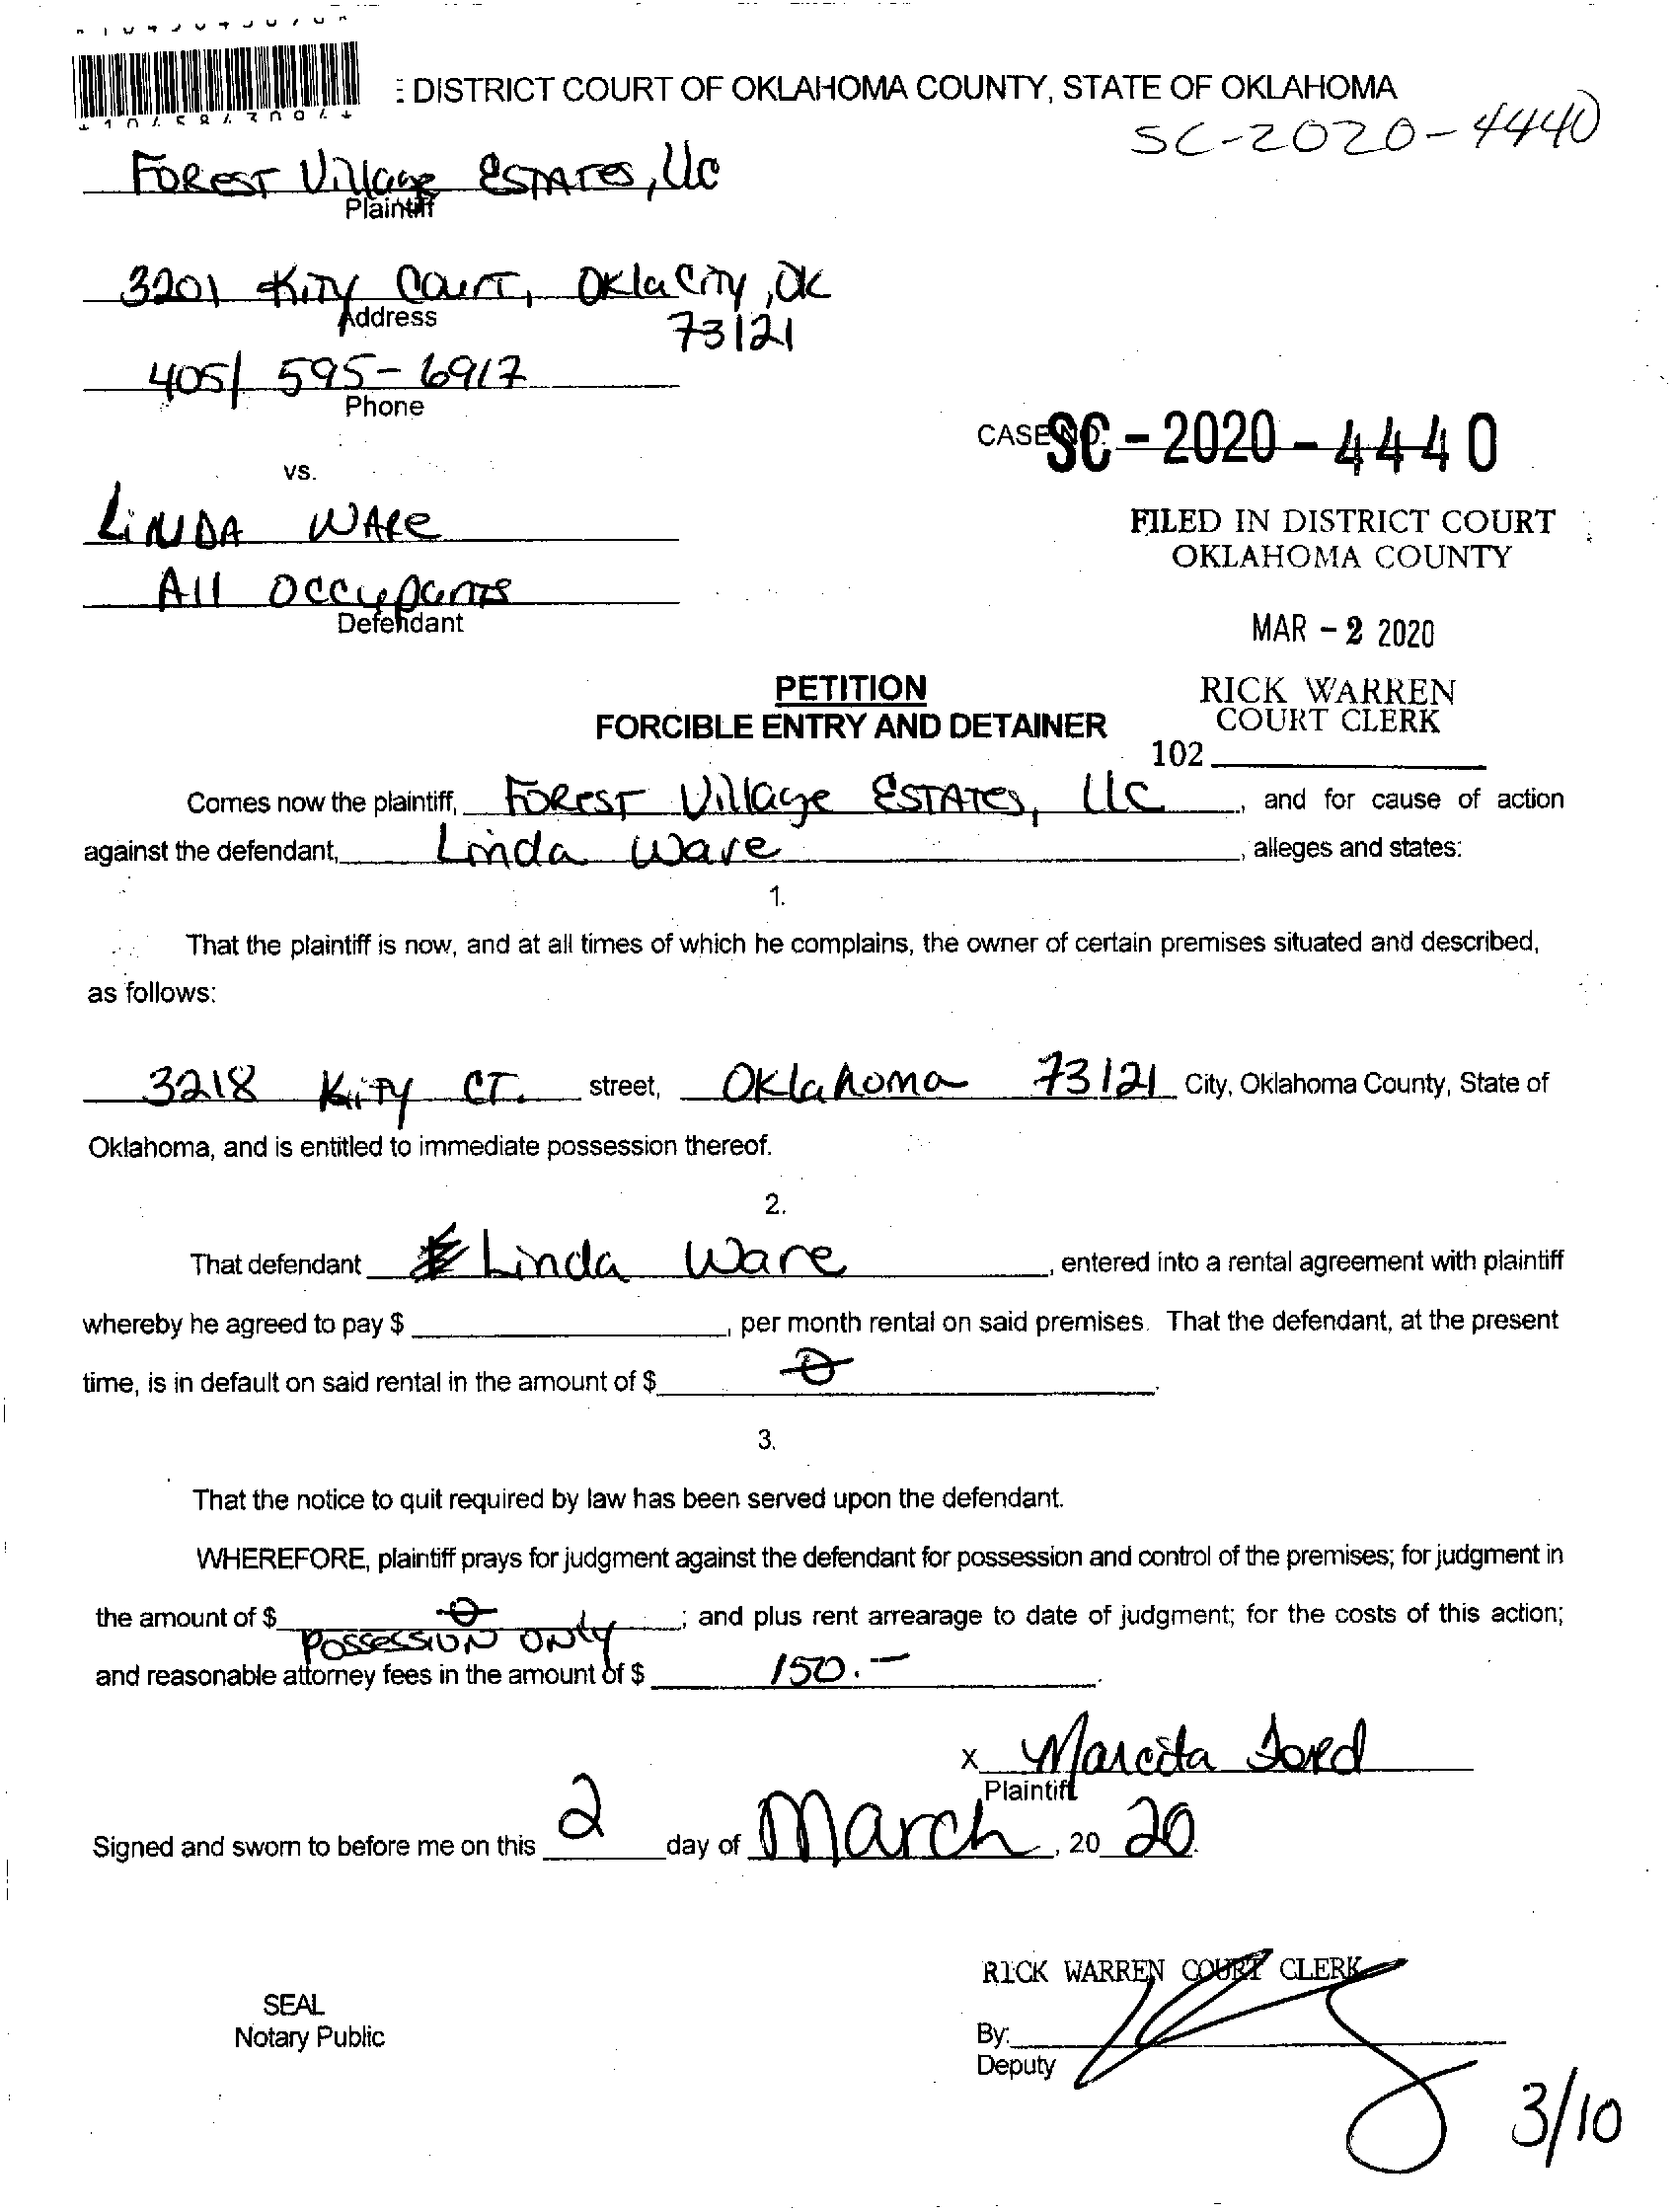 : DISTRICT COURT OF OKLAHOMA COUNTY, STATE OF OKLAHOMA
SC-2020-4440
FOREST Village ESTATES, LLC
Plaintiff
3201 Kity Court, Okla City, OK
Address
73121
405/ 595-6917
Phone
CASE NO. SC-2020-4440
vs.
LINDA WARE
FILED IN DISTRICT COURT
OKLAHOMA COUNTY
All Occupants
Defendant
MAR - 2 2020
PETITION
RICK WARREN
FORCIBLE ENTRY AND DETAINER
COURT CLERK
102
Comes now the plaintiff, FOREST Village ESTATES, LLC, and for cause of action
against the defendant, Linda Ware, alleges and states:
1.
That the plaintiff is now, and at all times of which he complains, the owner of certain premises situated and described,
as follows:
3218 Kity CT. street, Oklahoma 73121 City, Oklahoma County, State of
Oklahoma, and is entitled to immediate possession thereof.
2.
That defendant Linda Ware, entered into a rental agreement with plaintiff
whereby he agreed to pay $, per month rental on said premises. That the defendant, at the present
time, is in default on said rental in the amount of $ 0.
3.
That the notice to quit required by law has been served upon the defendant.
WHEREFORE, plaintiff prays for judgment against the defendant for possession and control of the premises; for judgment in
the amount of $ 0; and plus rent arrearage to date of judgment; for the costs of this action;
POSSESSION ONLY
and reasonable attorney fees in the amount of $ 150.-
x Marcita Ford
Plaintiff
Signed and sworn to before me on this 2 day of March, 20 20.
RICK WARREN COURT CLERK
SEAL
Notary Public
By:
Deputy
3/10